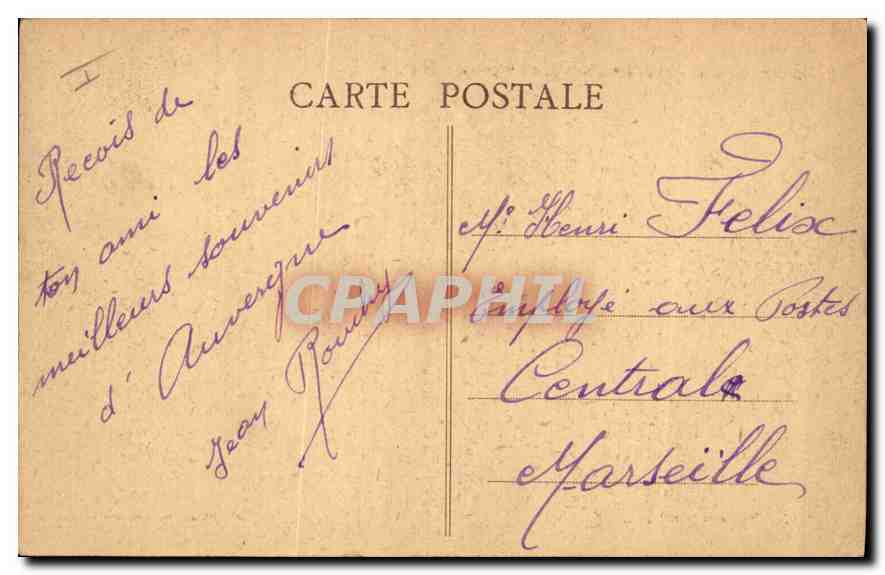 CARTE POSTALE
I
Recois de
ton ami les
meilleurs souvenirs
d'Auvergne
Jean
Mr Henri Felix
Employé aux Postes
Centrale
Marseille
CPAPHIL